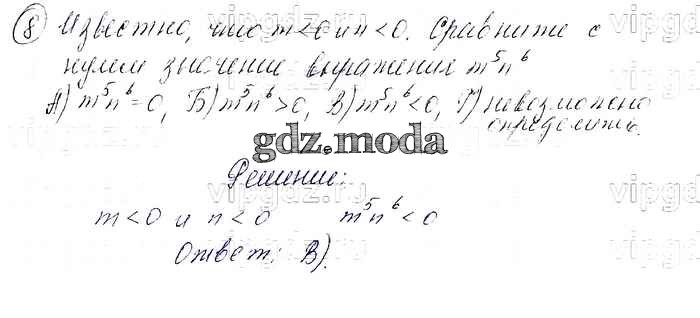 8 Известно, что m<0 и n<0. Сравните с
нулем значение выражения m⁵n⁶
А) m⁵n⁶=0, Б) m⁵n⁶>0, В) m⁵n⁶<0, Г) невозможно
определить.
gdz.moda
Решение:
m<0 и n<0 m⁵n⁶<0
Ответ: В).